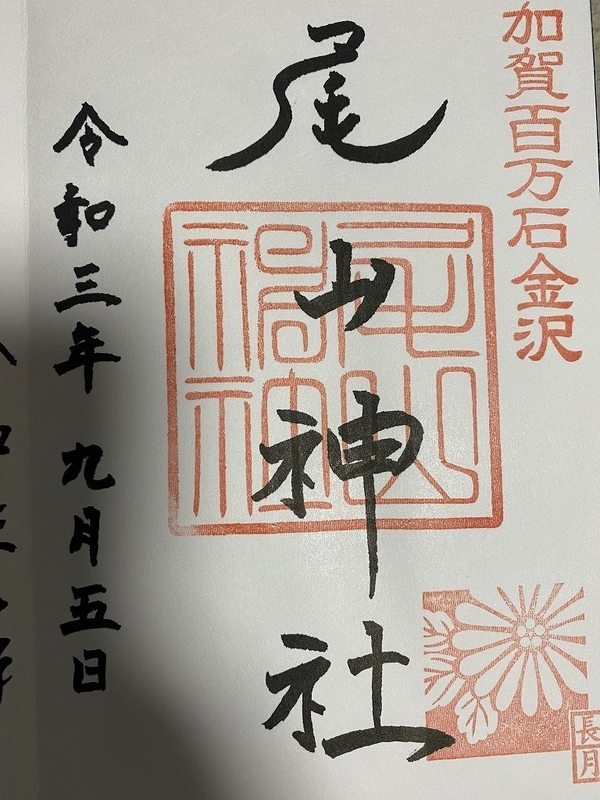 加賀百万石金沢
尾山神社
尾山神社
長月
令和三年 九月五日